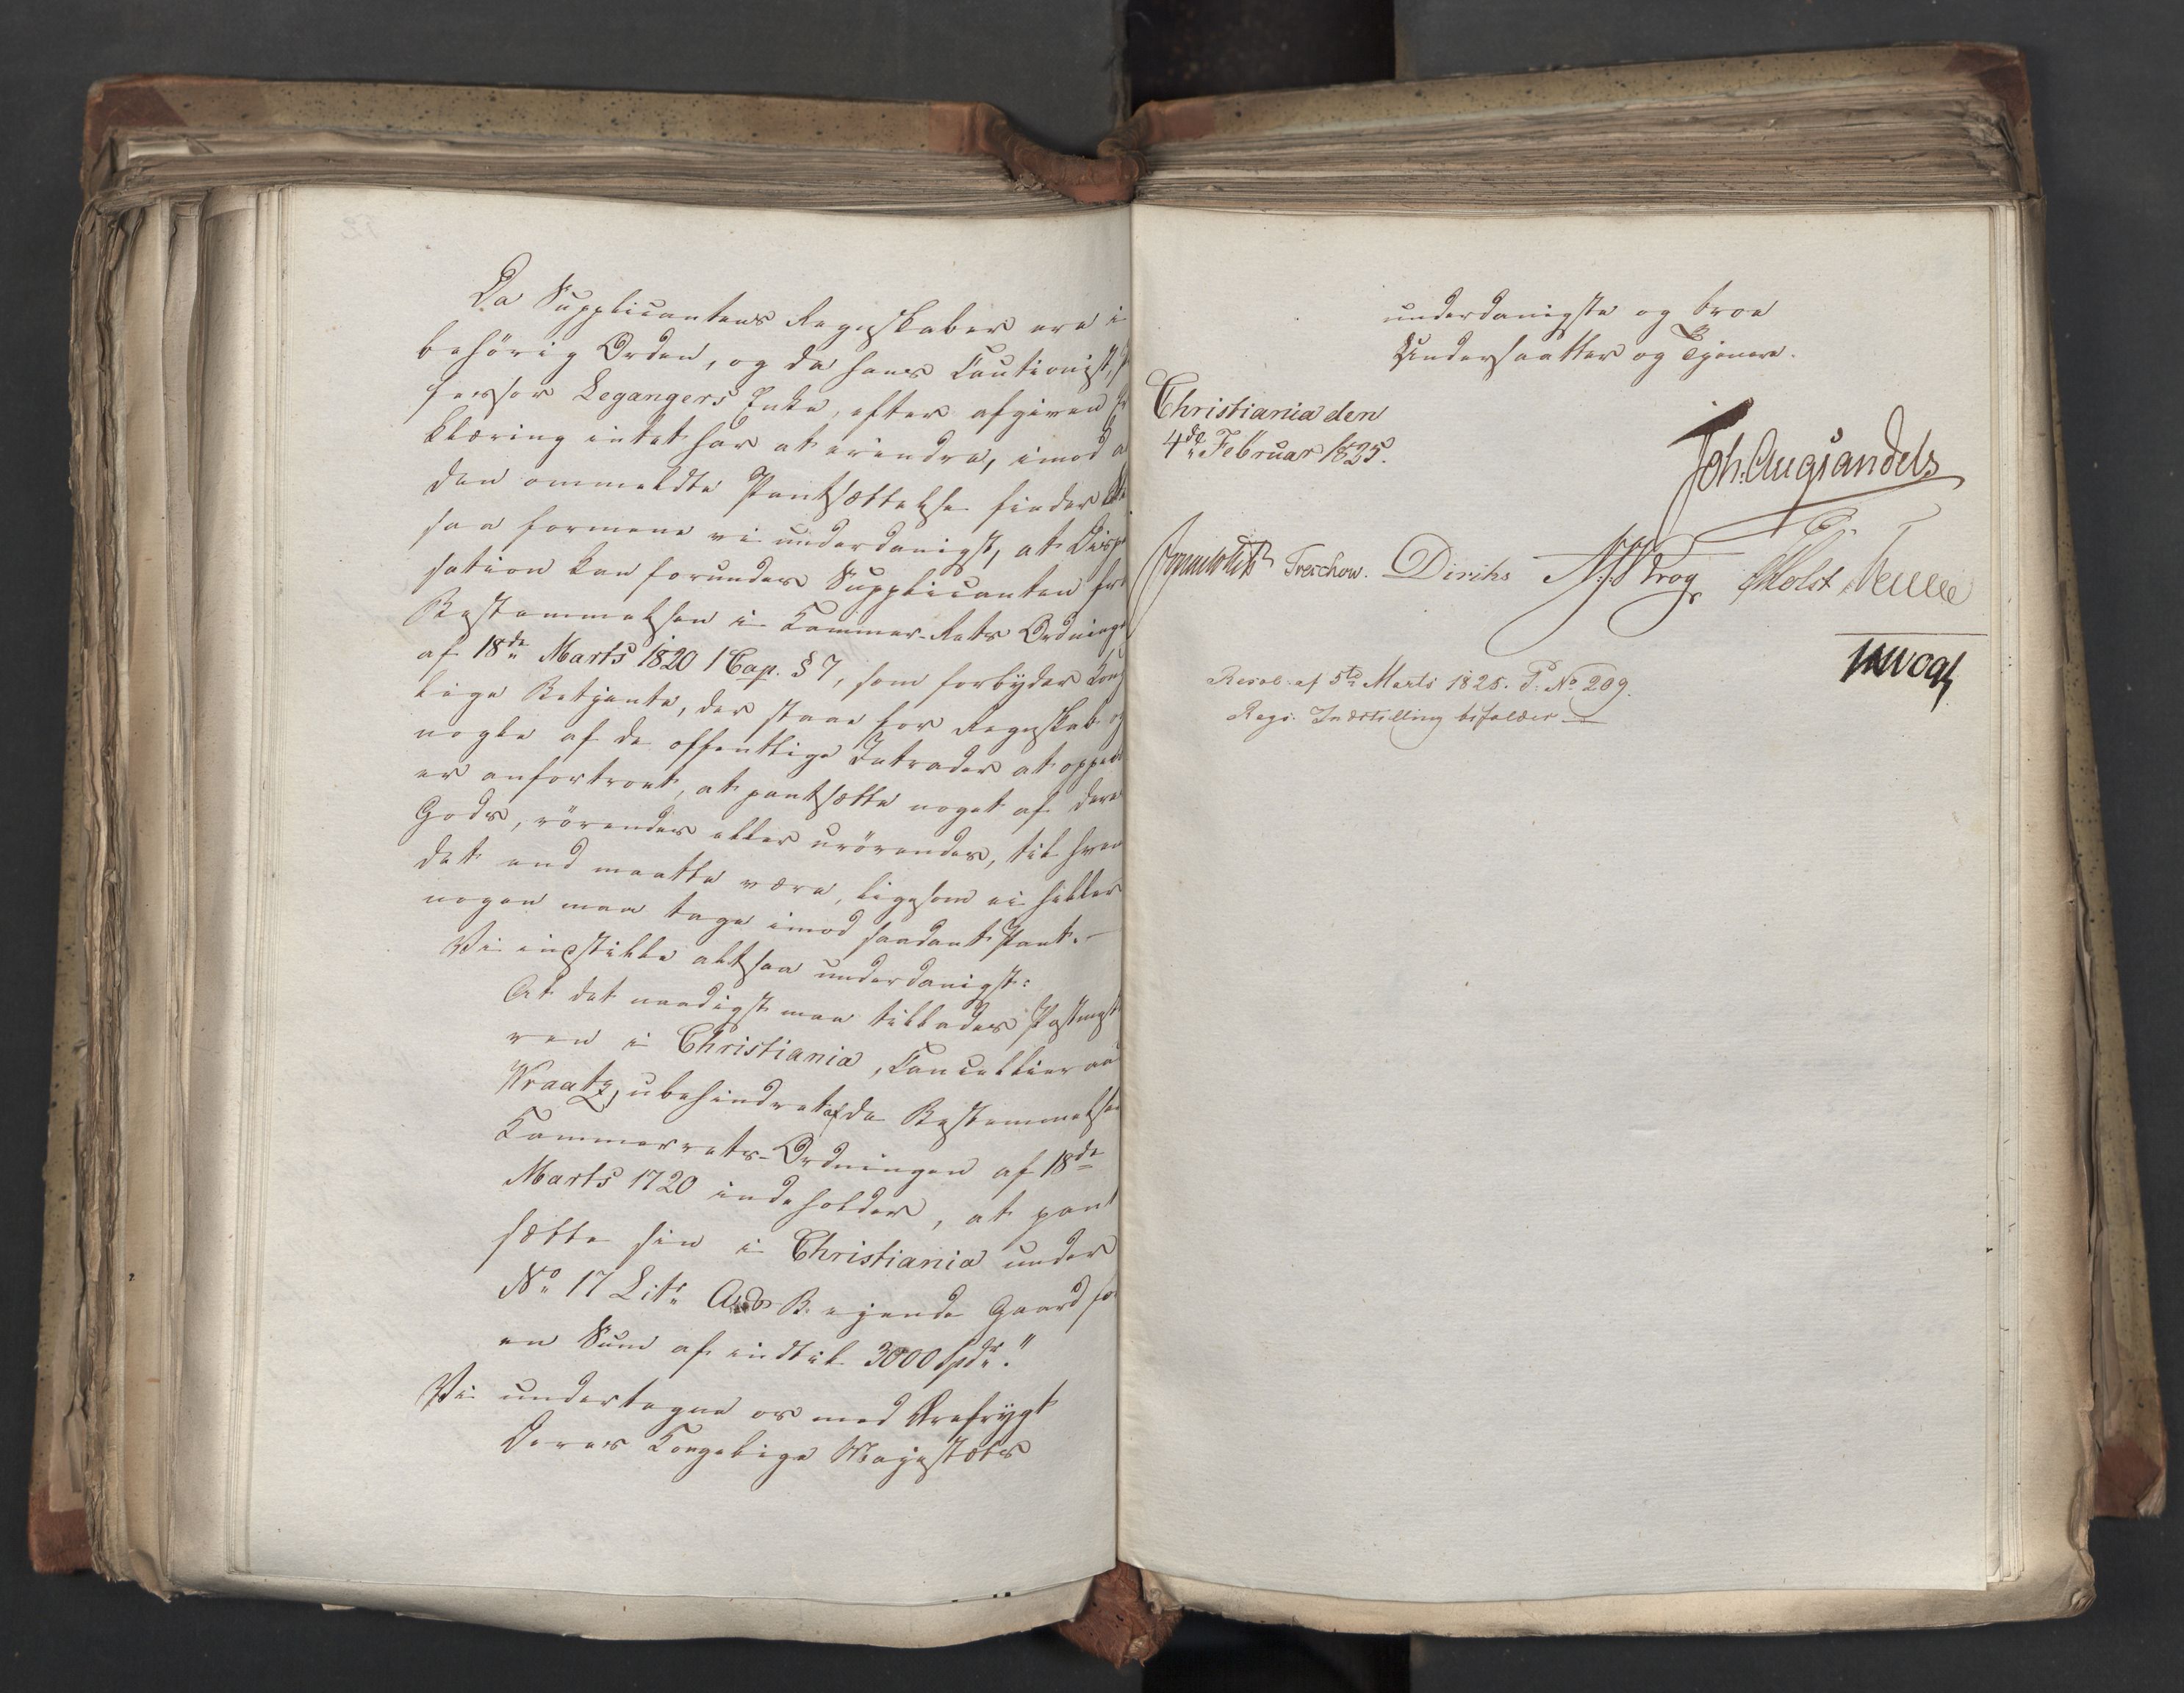 Da Supplicantens Regnskaber ere i
behörig Orden, og da hans Cautionist,
fessor Legangers Enke, efter afgiven
klæring intet har at erindre, imod a
den ommeldte Pantsættelse finder
saa formene vi underdanigst, at Disp
sation kan forundes Supplicanten fra
Bestemmelsen i Kammer-Rets Ordning
af 18de Marts 1820 1 Cap. § 7, som forbyder Kong
lige Betjente, der staae for Regnskab og
nogle af de offentlige Intrader at oppe
er anfortroet, at pantsætte noget af dere
Gods, rörendes eller urörendes, til hvem
det end maatte være, ligesom ei heller
nogen maa tage imod saadant Pant.-
Vi indstille altsaa underdanigst:
At det naadigst maa tillades Postmest
ren i Christiania, Cancellieraad
Wraatz, ubehindret af de Bestemmelser
Kammerrets-Ordningen af 18de
Marts 1720 indeholder, at pant
sætte sin i Christiania under
No 17 Litr. A og B. ejende Gaard for
en Sum af indtil 3000 Spdr."
Vi undertegne os med Ærefrygt
Deres Kongelige Majestæts
underdanigste og troe
Undersaatter og Tjenere.
Christiania den
4de Februar 1825.
Joh. Aug. Sandels
Treschow. Diriks N. Krog Holst
JHVogt
Resol. af 5te Marts 1825. P. No 209.
Regj. Indstilling bifaldes